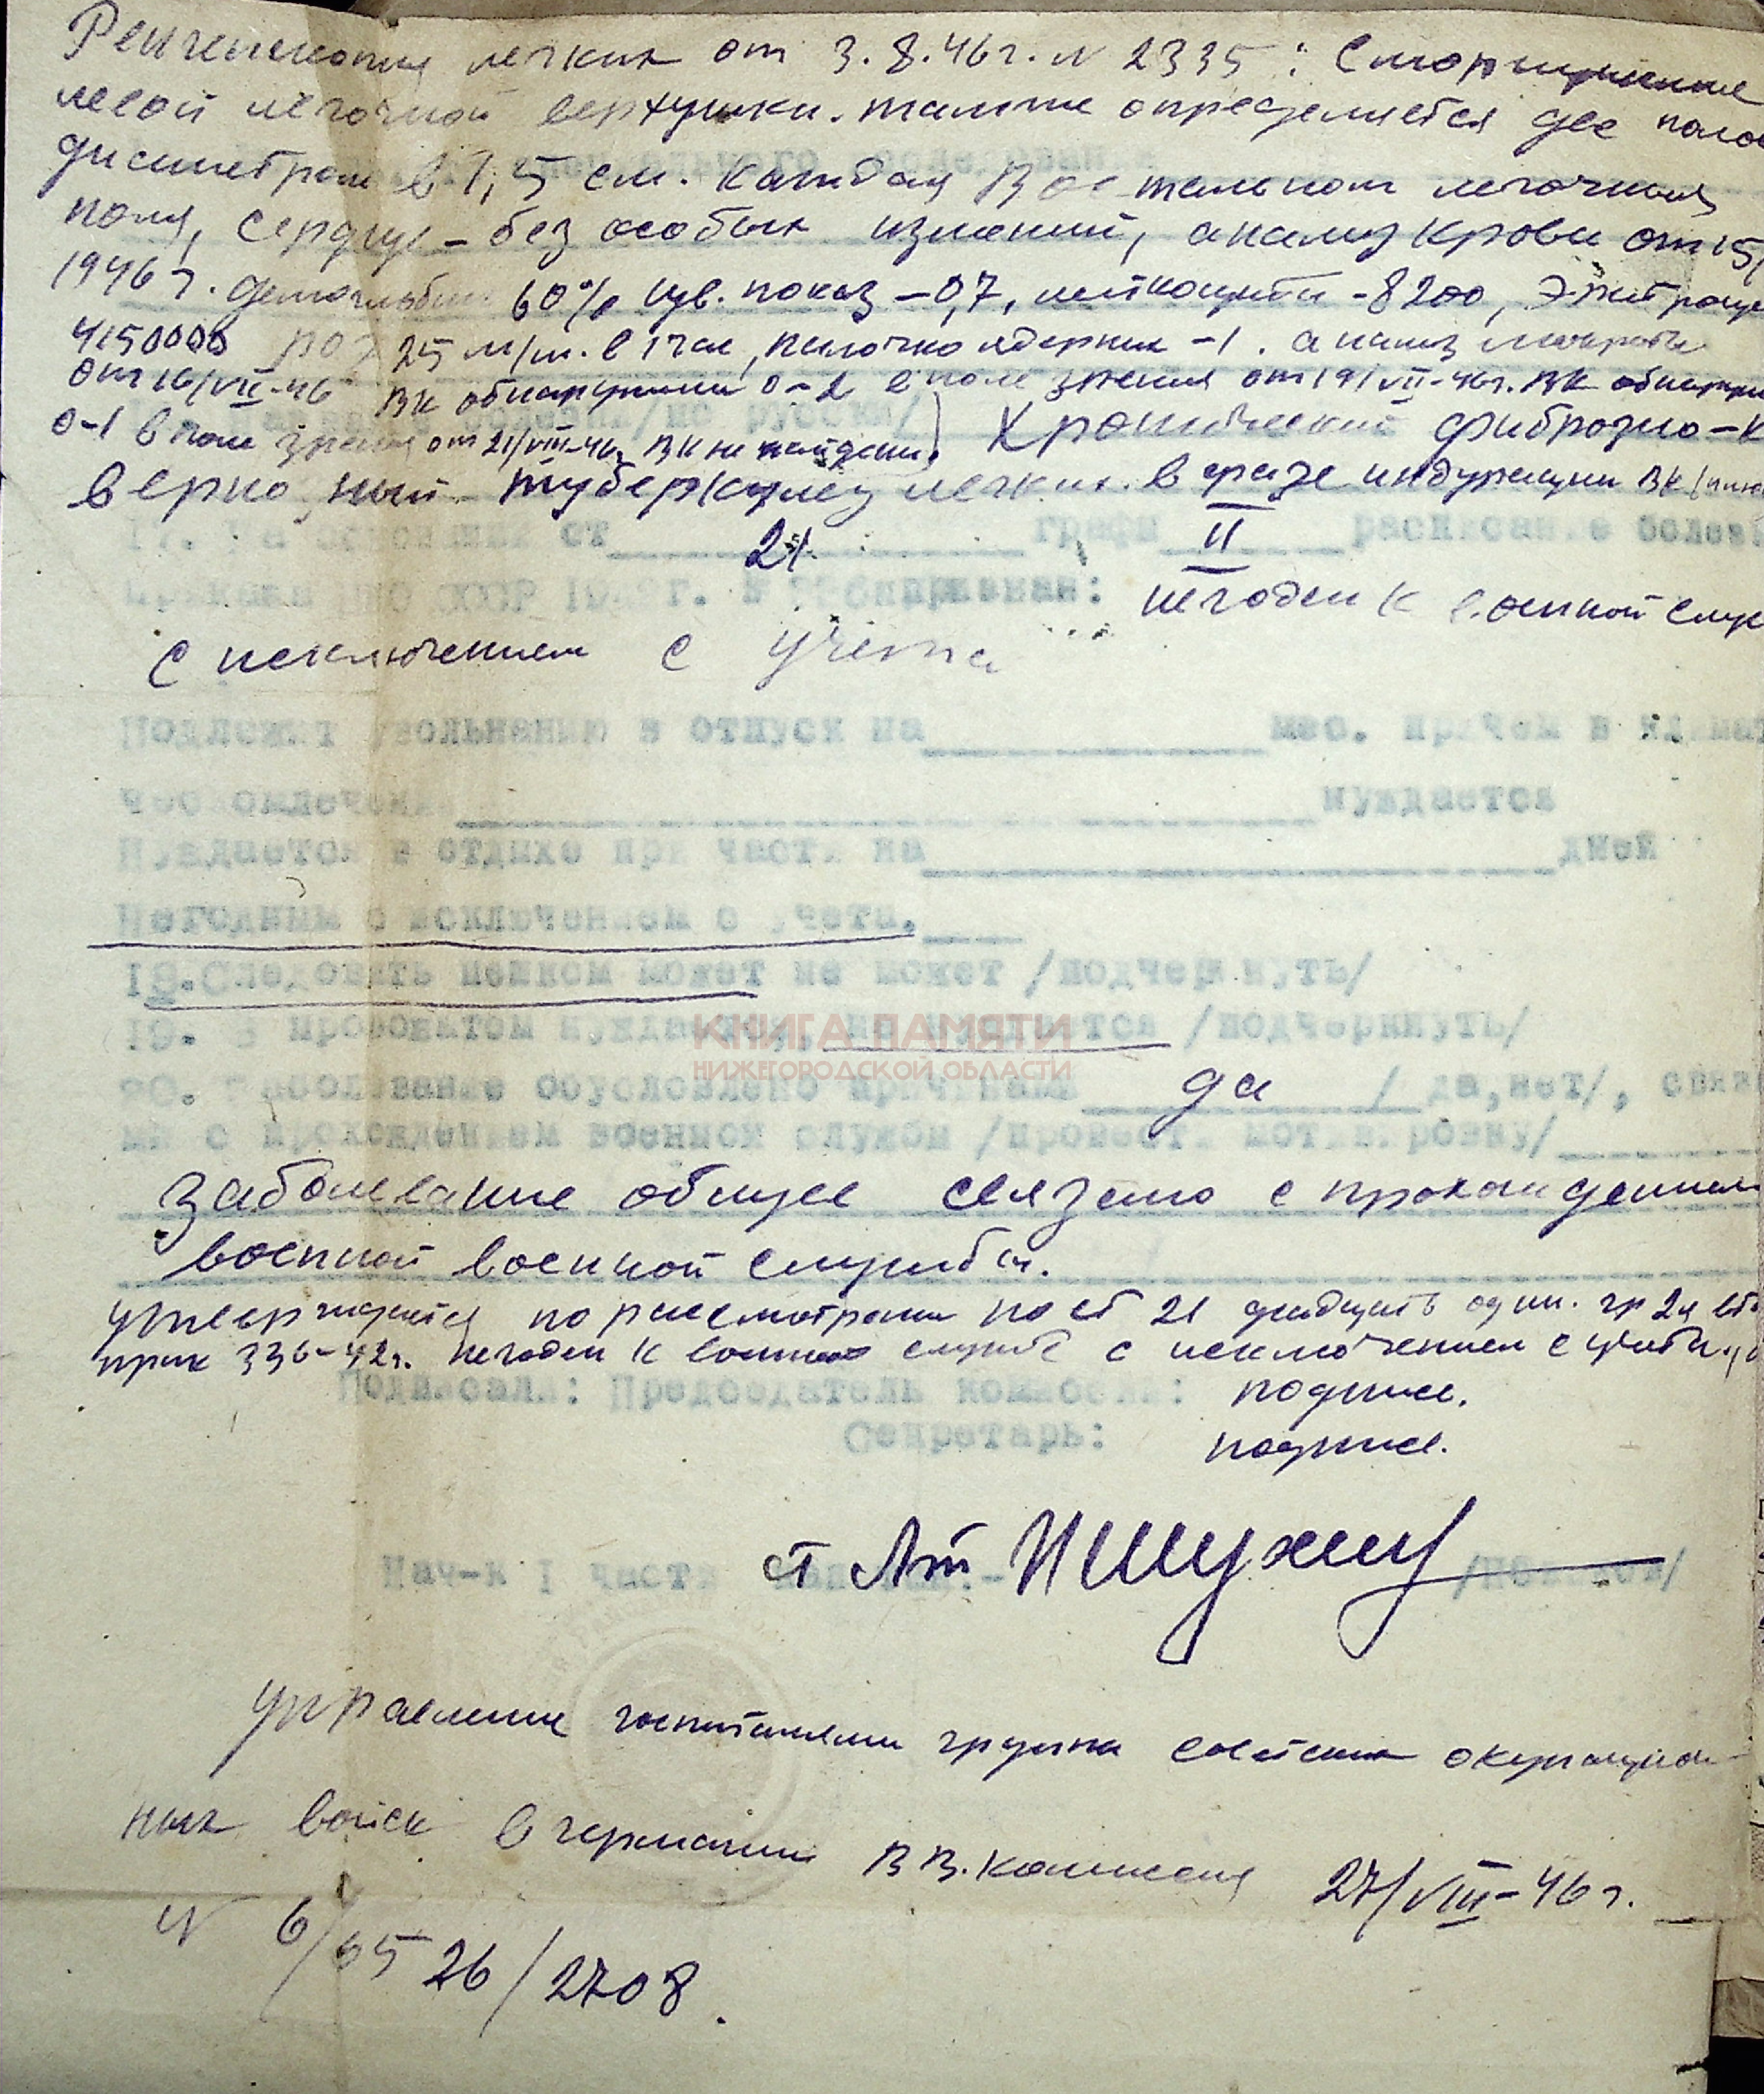 Рентгеноскопия легких от 3.8.46г. N 2335: Сморщивание
левой легочной верхушки. также определяется две поло
диаметром в 1,5 см. каждая В остальном легочные
поля, сердце - без особых измений, анализ крови от 15/
1946 г. гемоглобин 60% цв. показ - 0,7, лейкоциты - 8200, Эритроци
4150000 роэ 25 м/м. в 1 час, палочко ядерник - 1. анализ мокроты
от 16/VII-46 ВК обнаружили 0-2 в поле зрения от 19/VII-46г. ВК обнаруж
/по русски/
0-1 в поле зрения от 21/VIII-46г ВК не найдены. Хронический фиброзно-к
верно зный туберкулез легких в фазе индурации ВК/
17. На основании ст 21 графы II расписание болез
приказа НКО СССР 19 г. N признан: негоден к военной служ
с исключением с учета
Подлежит увольнению в отпуск на мес. причем в
нуждается
Нуждается в отдыхе при части на дней
Негодным с исключением с учета.
18. Следовать пешком может не может /подчеркнуть/
19. В провожатом нуждается, не нуждается /подчеркнуть/
КНИГА ПАМЯТИ
НИЖЕГОРОДСКОЙ ОБЛАСТИ
20. Заболевание обусловлено причинами да /да, нет/, связа
ми с прохождением военной службы /провест.
заболевание общее связано с прохождением
военной военной службы.
утверждается по рассмотрении по ст 21 двадцать один. гр 2й
прик 336-42г. негоден к военной службе с исключением с учета.
Подписали: Председатель комиссии: подпись.
Секретарь: подпись.
Нач-к I части ст Лт
управление госпиталями группы советских окупацион
ных войск в германии В В. комиссия 27/VIII-46 г.
N 6/6526/2708.